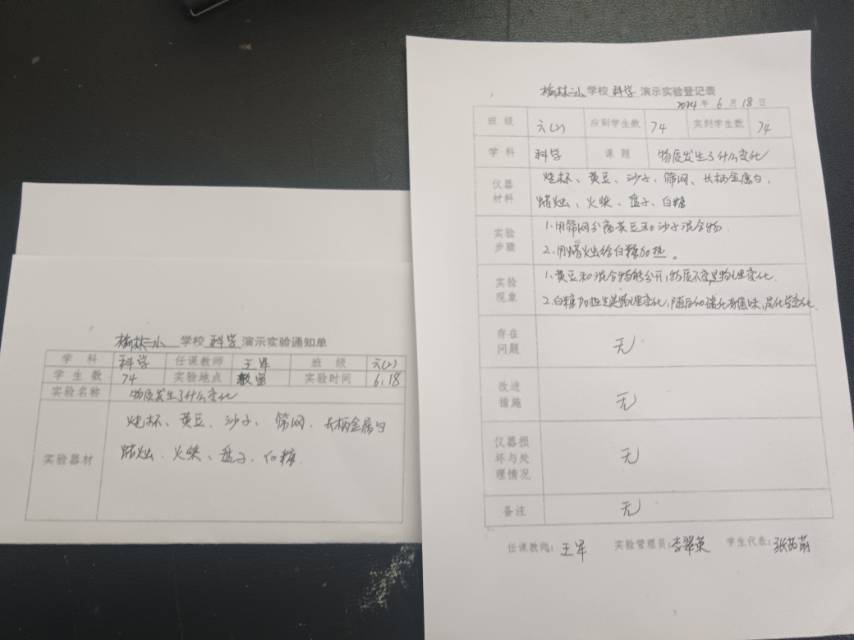 榆林二小 学校 科学 演示实验通知单
学科 科学 任课教师 王军 班级 六(2)
学生数 74 实验地点 教室 实验时间 6.18
实验名称 物质发生了什么变化
实验器材 烧杯、黄豆、沙子、筛网、长柄金属勺
蜡烛、火柴、盘子、白糖
榆林二小 学校 科学 演示实验登记表
2024年6月18日
班级 六(2) 应到学生数 74 实到学生数 74
学科 科学 课题 物质发生了什么变化
仪器材料 烧杯、黄豆、沙子、筛网、长柄金属勺、
蜡烛、火柴、盘子、白糖
实验步骤 1.用筛网分离黄豆和沙子混合物
2.用蜡烛给白糖加热。
实验现象 1.黄豆和混合物能分开,物质不变是物理变化
2.白糖加热先是物理变化,随后的碳化有焦味,是化学变化
存在问题 无
改进措施 无
仪器损坏与处理情况 无
备注 无
任课教师:王军 实验管理员:李翠英 学生代表: